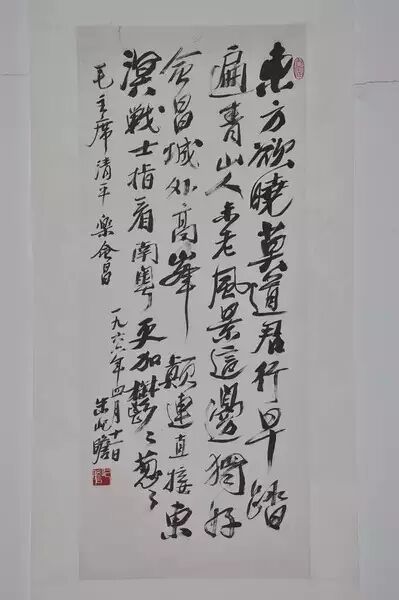 东方欲曉莫道君行早踏
遍青山人未老風景這邊獨好
会昌城外高峯顛連直接東
溟戰士指看南粤更加鬱〻葱〻
毛主席清平樂会昌
一九六六年四月 朱屺瞻